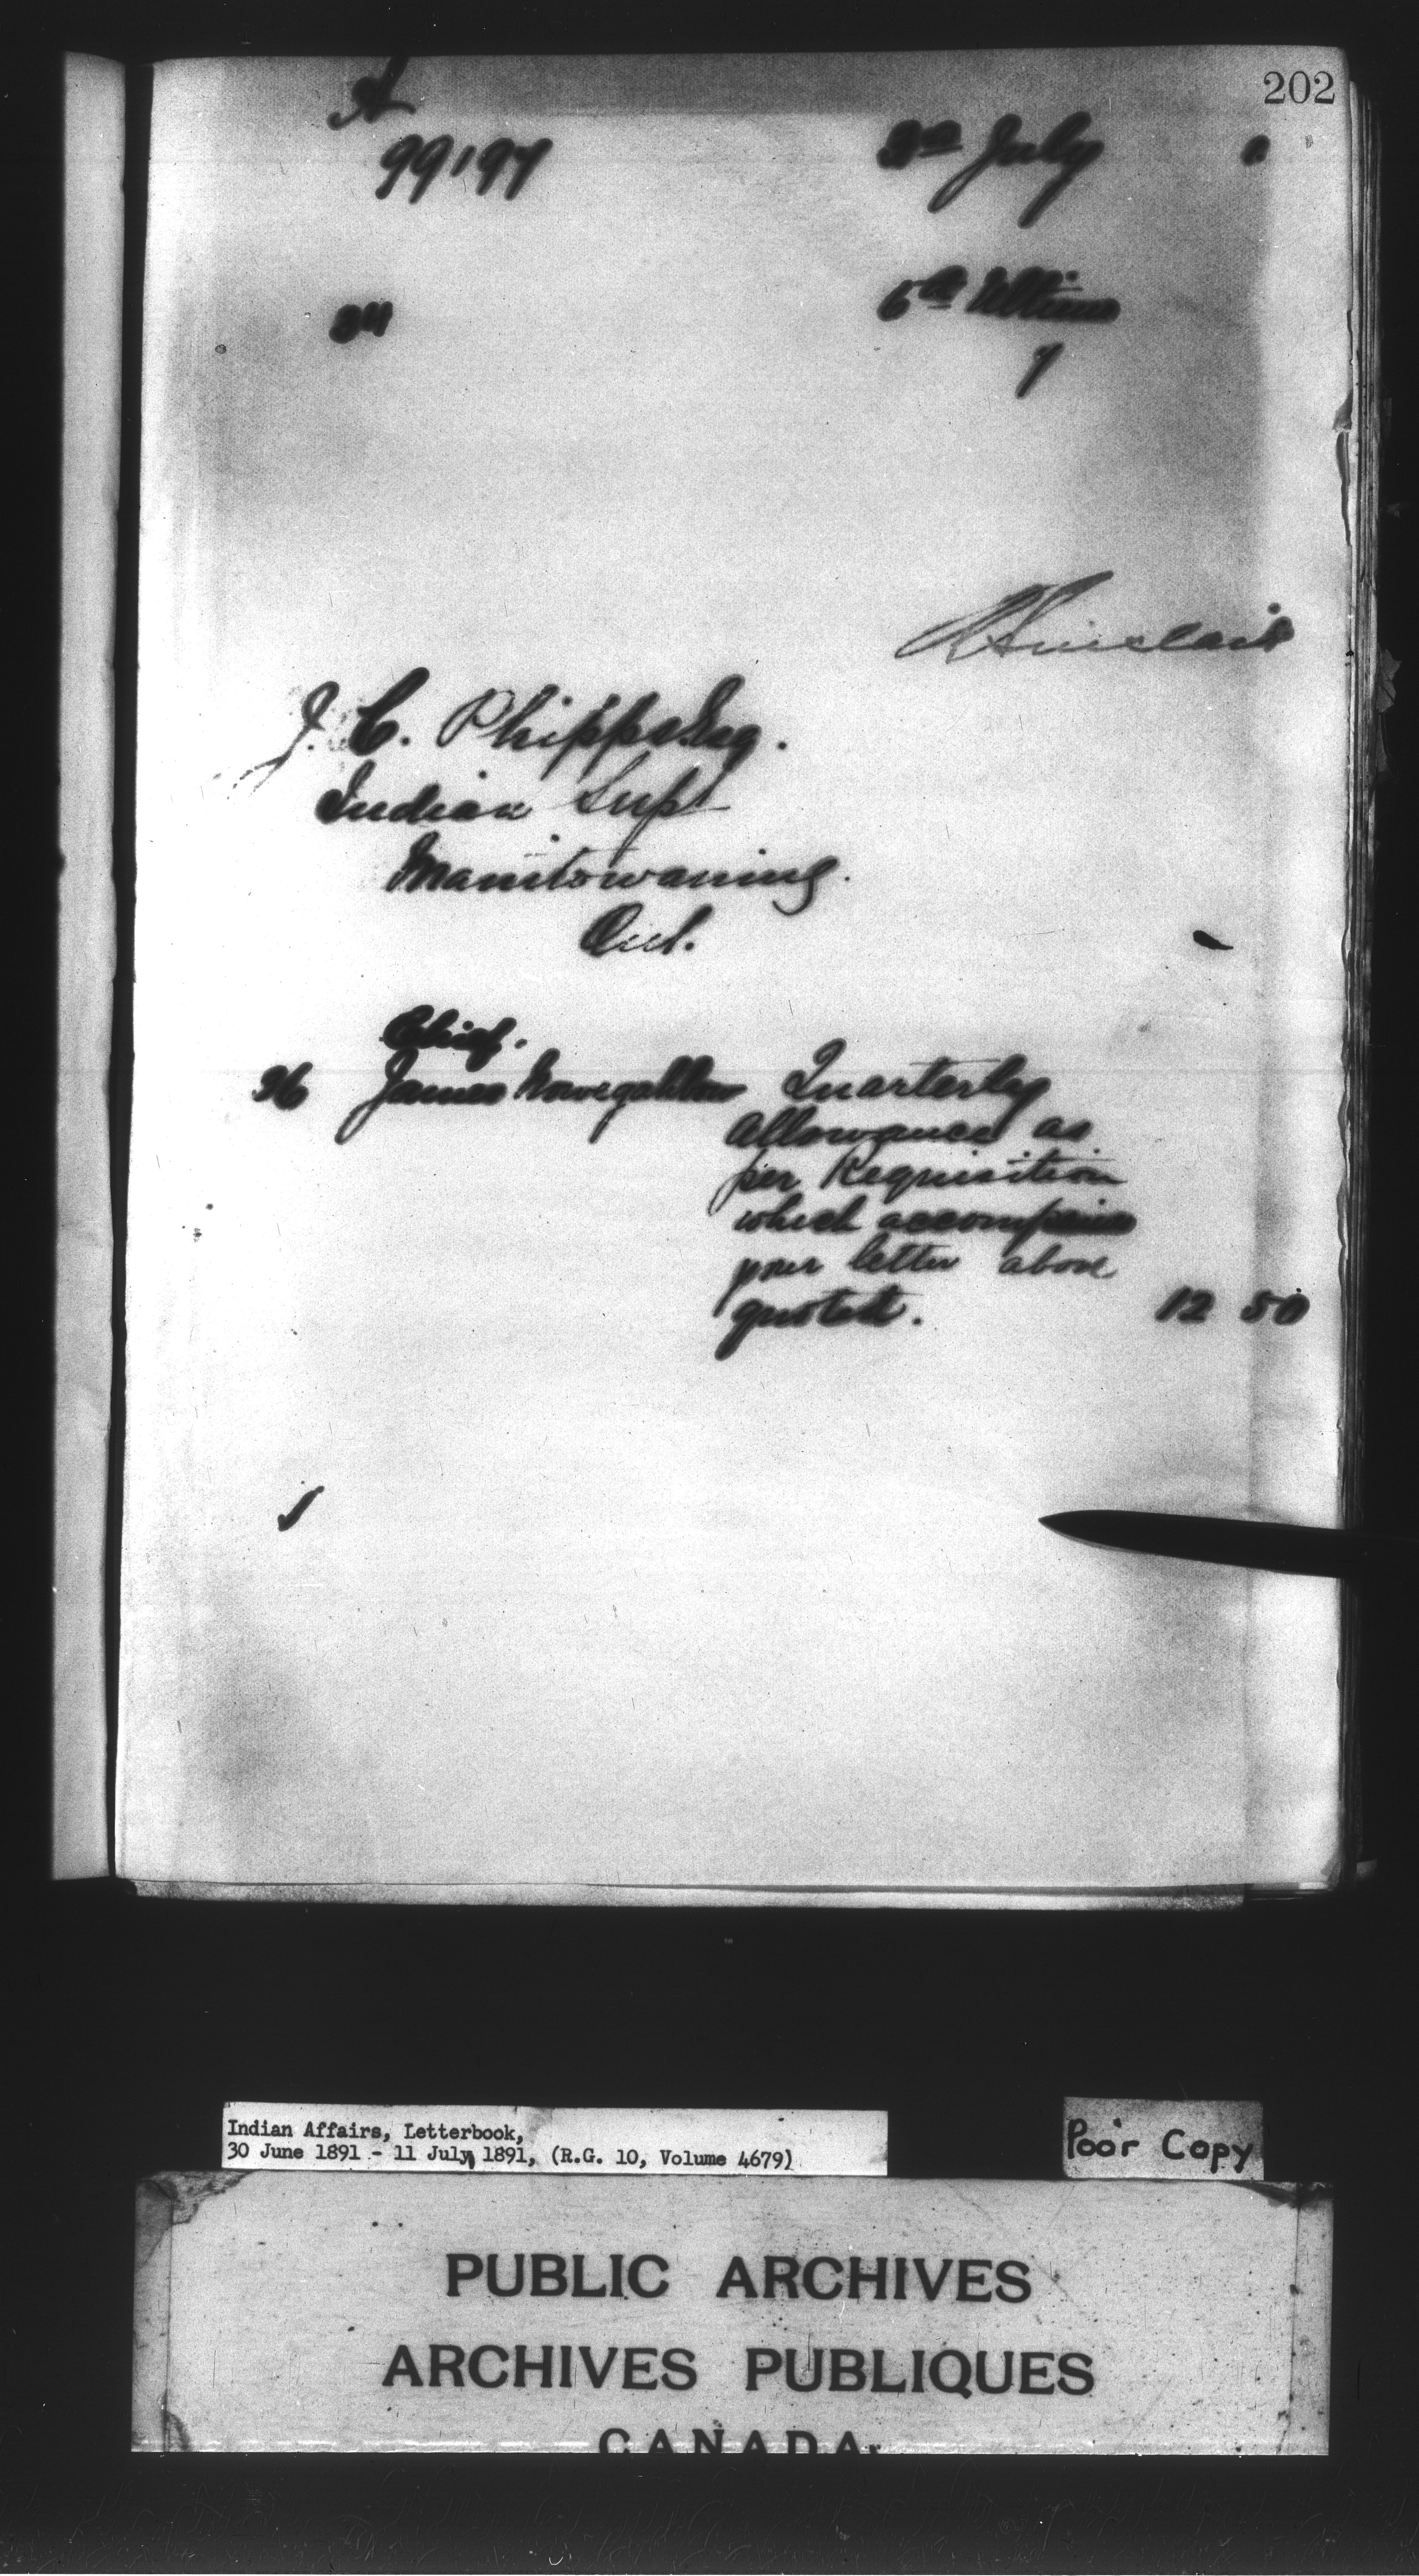 202
A
99197
2nd July 1
34
6th Ultimo
7
R Sinclair
J. C. Phipps Esq.
Indian Supt
Manitowaning.
Ont.
Chief.
36 James Quarterly
Allowance as
per Requisition
which
your letter above
quoted. 12 50
Indian Affairs, Letterbook,
30 June 1891 - 11 July, 1891, (R.G. 10, Volume 4679)
Poor Copy
PUBLIC ARCHIVES
ARCHIVES PUBLIQUES
CANADA